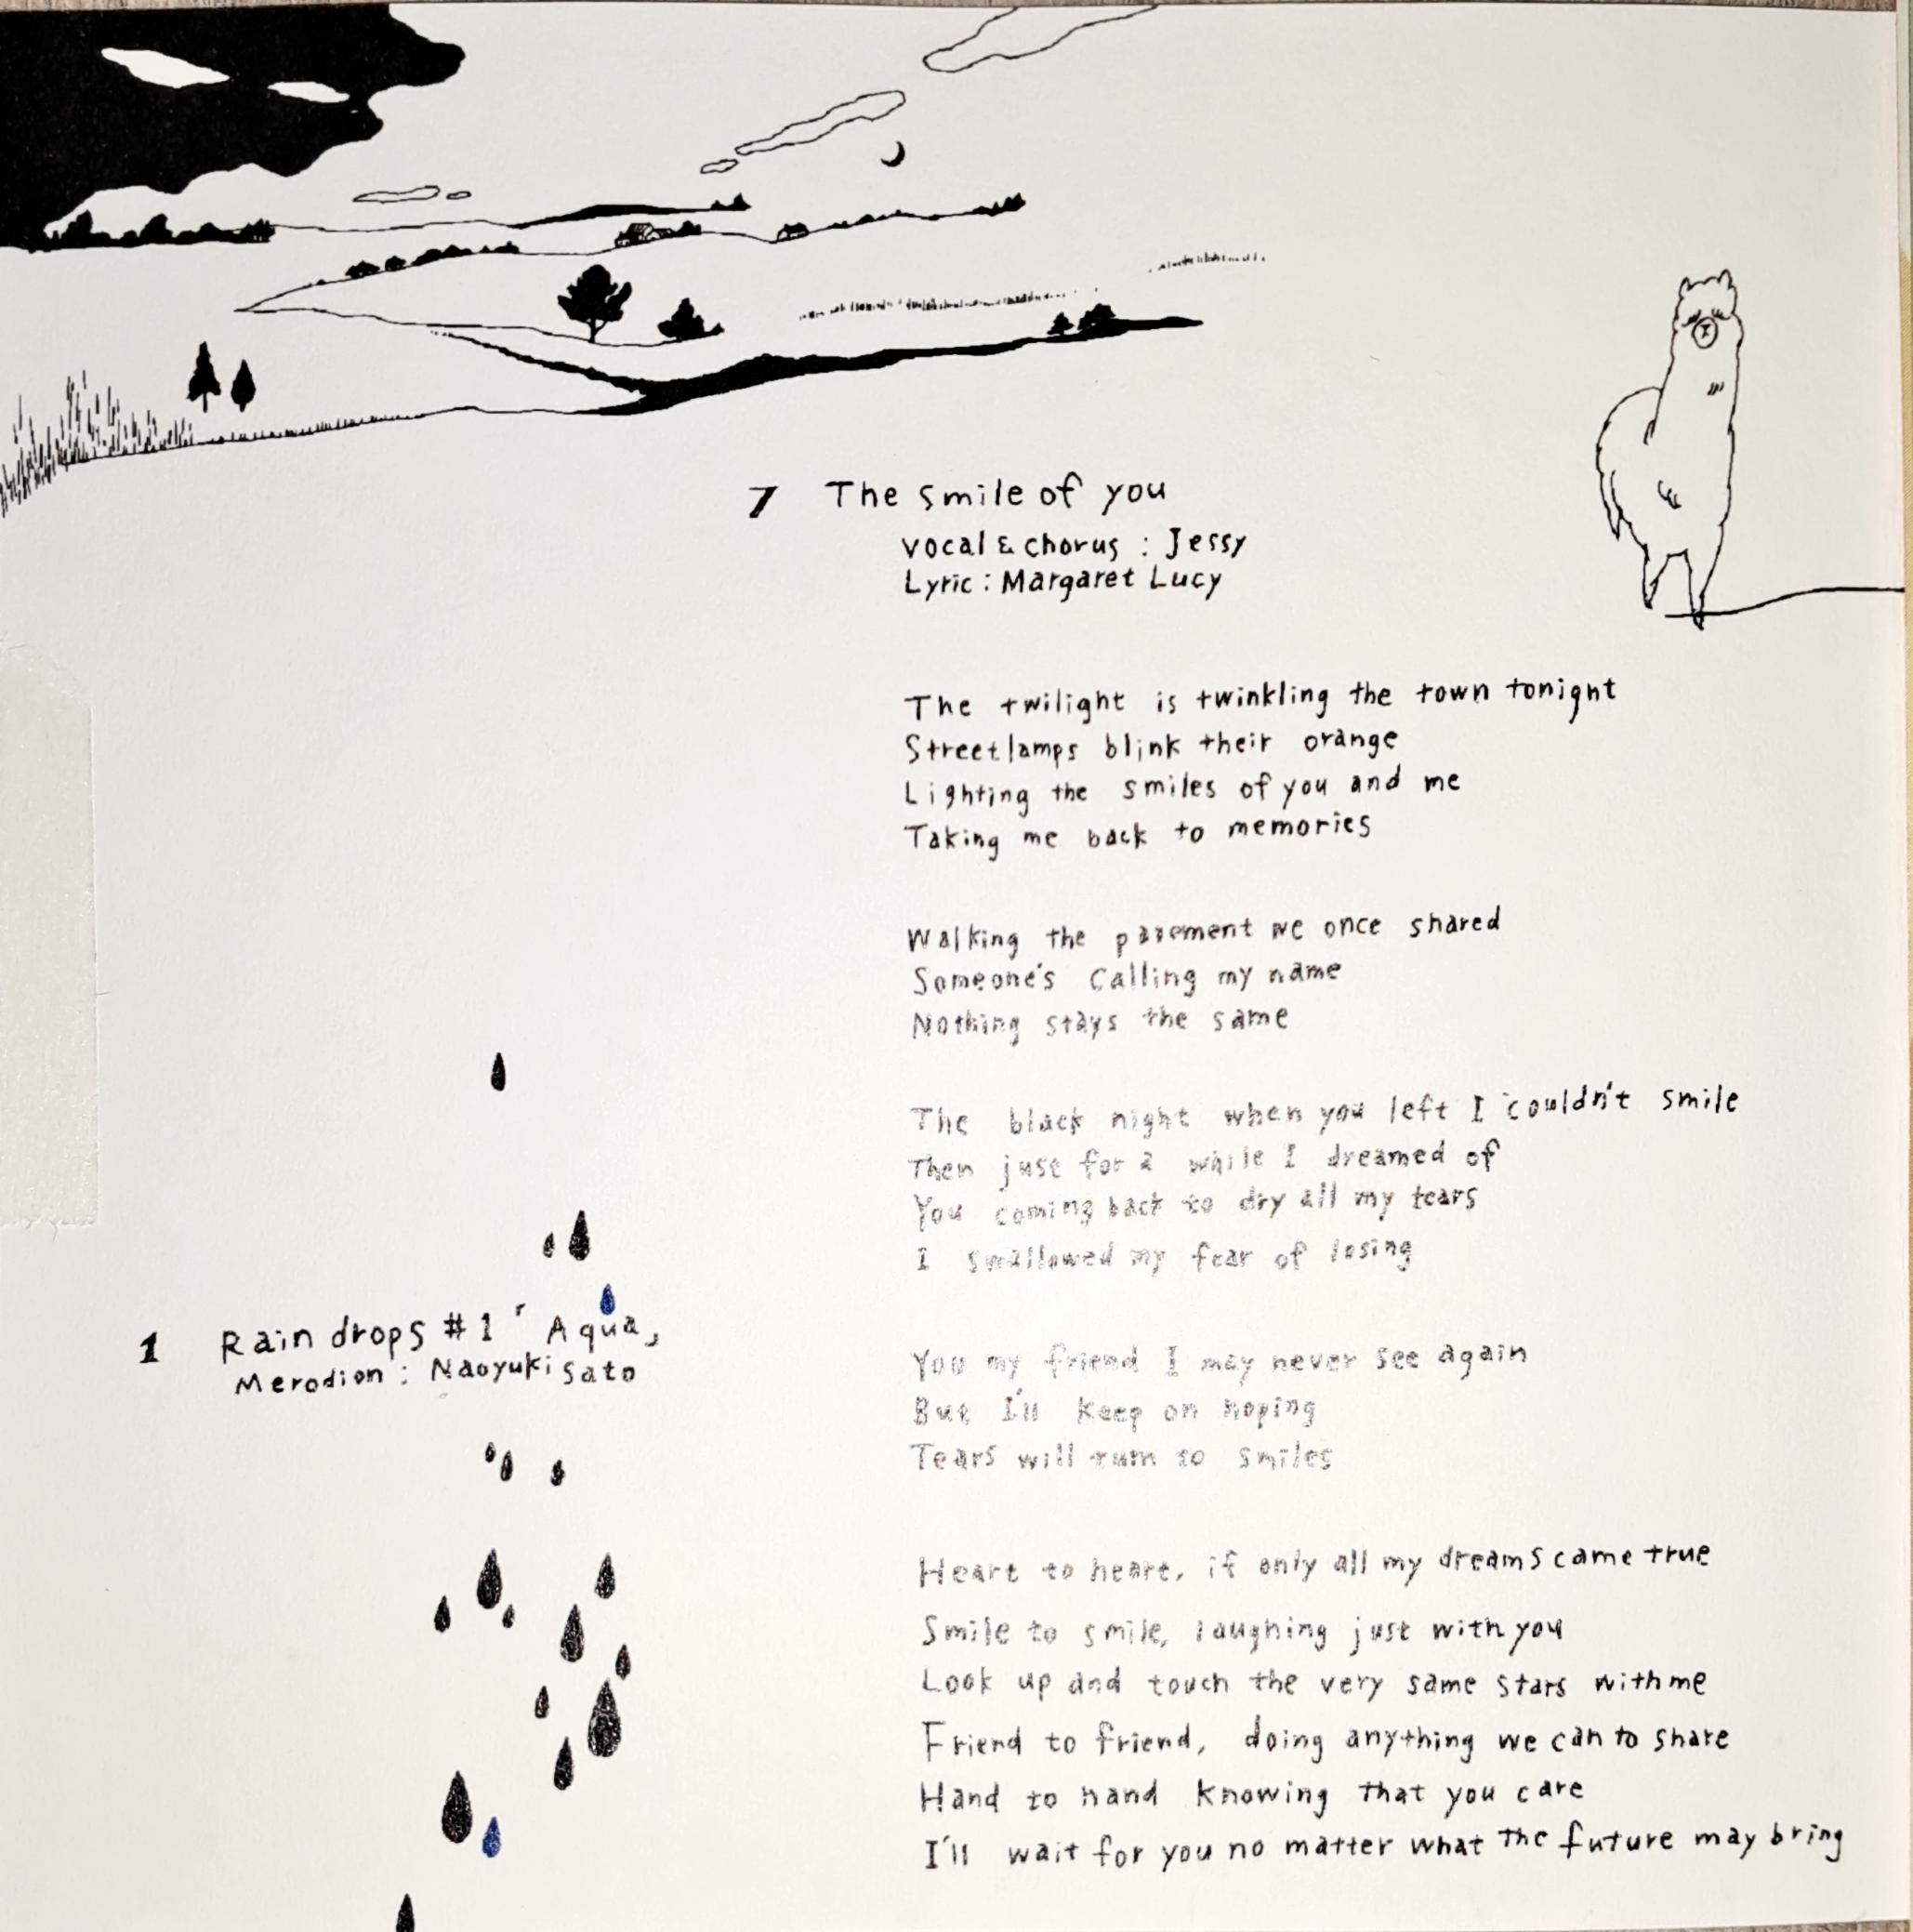 7 The smile of you
vocal & chorus : Jessy
Lyric : Margaret Lucy
The twilight is twinkling the town tonight
Streetlamps blink their orange
Lighting the smiles of you and me
Taking me back to memories
Walking the pavement we once shared
Someone's calling my name
Nothing stays the same
The black night when you left I couldn't smile
Then just for a while I dreamed of
You coming back to dry all my tears
I swallowed my fear of losing
You my friend I may never see again
But I'll keep on hoping
Tears will turn to smiles
Heart to heart, if only all my dreams came true
Smile to smile, laughing just with you
Look up and touch the very same stars with me
Friend to friend, doing anything we can to share
Hand to hand knowing that you care
I'll wait for you no matter what the future may bring
1 Rain drops #1 「Aqua」
Merodion : Naoyuki Sato